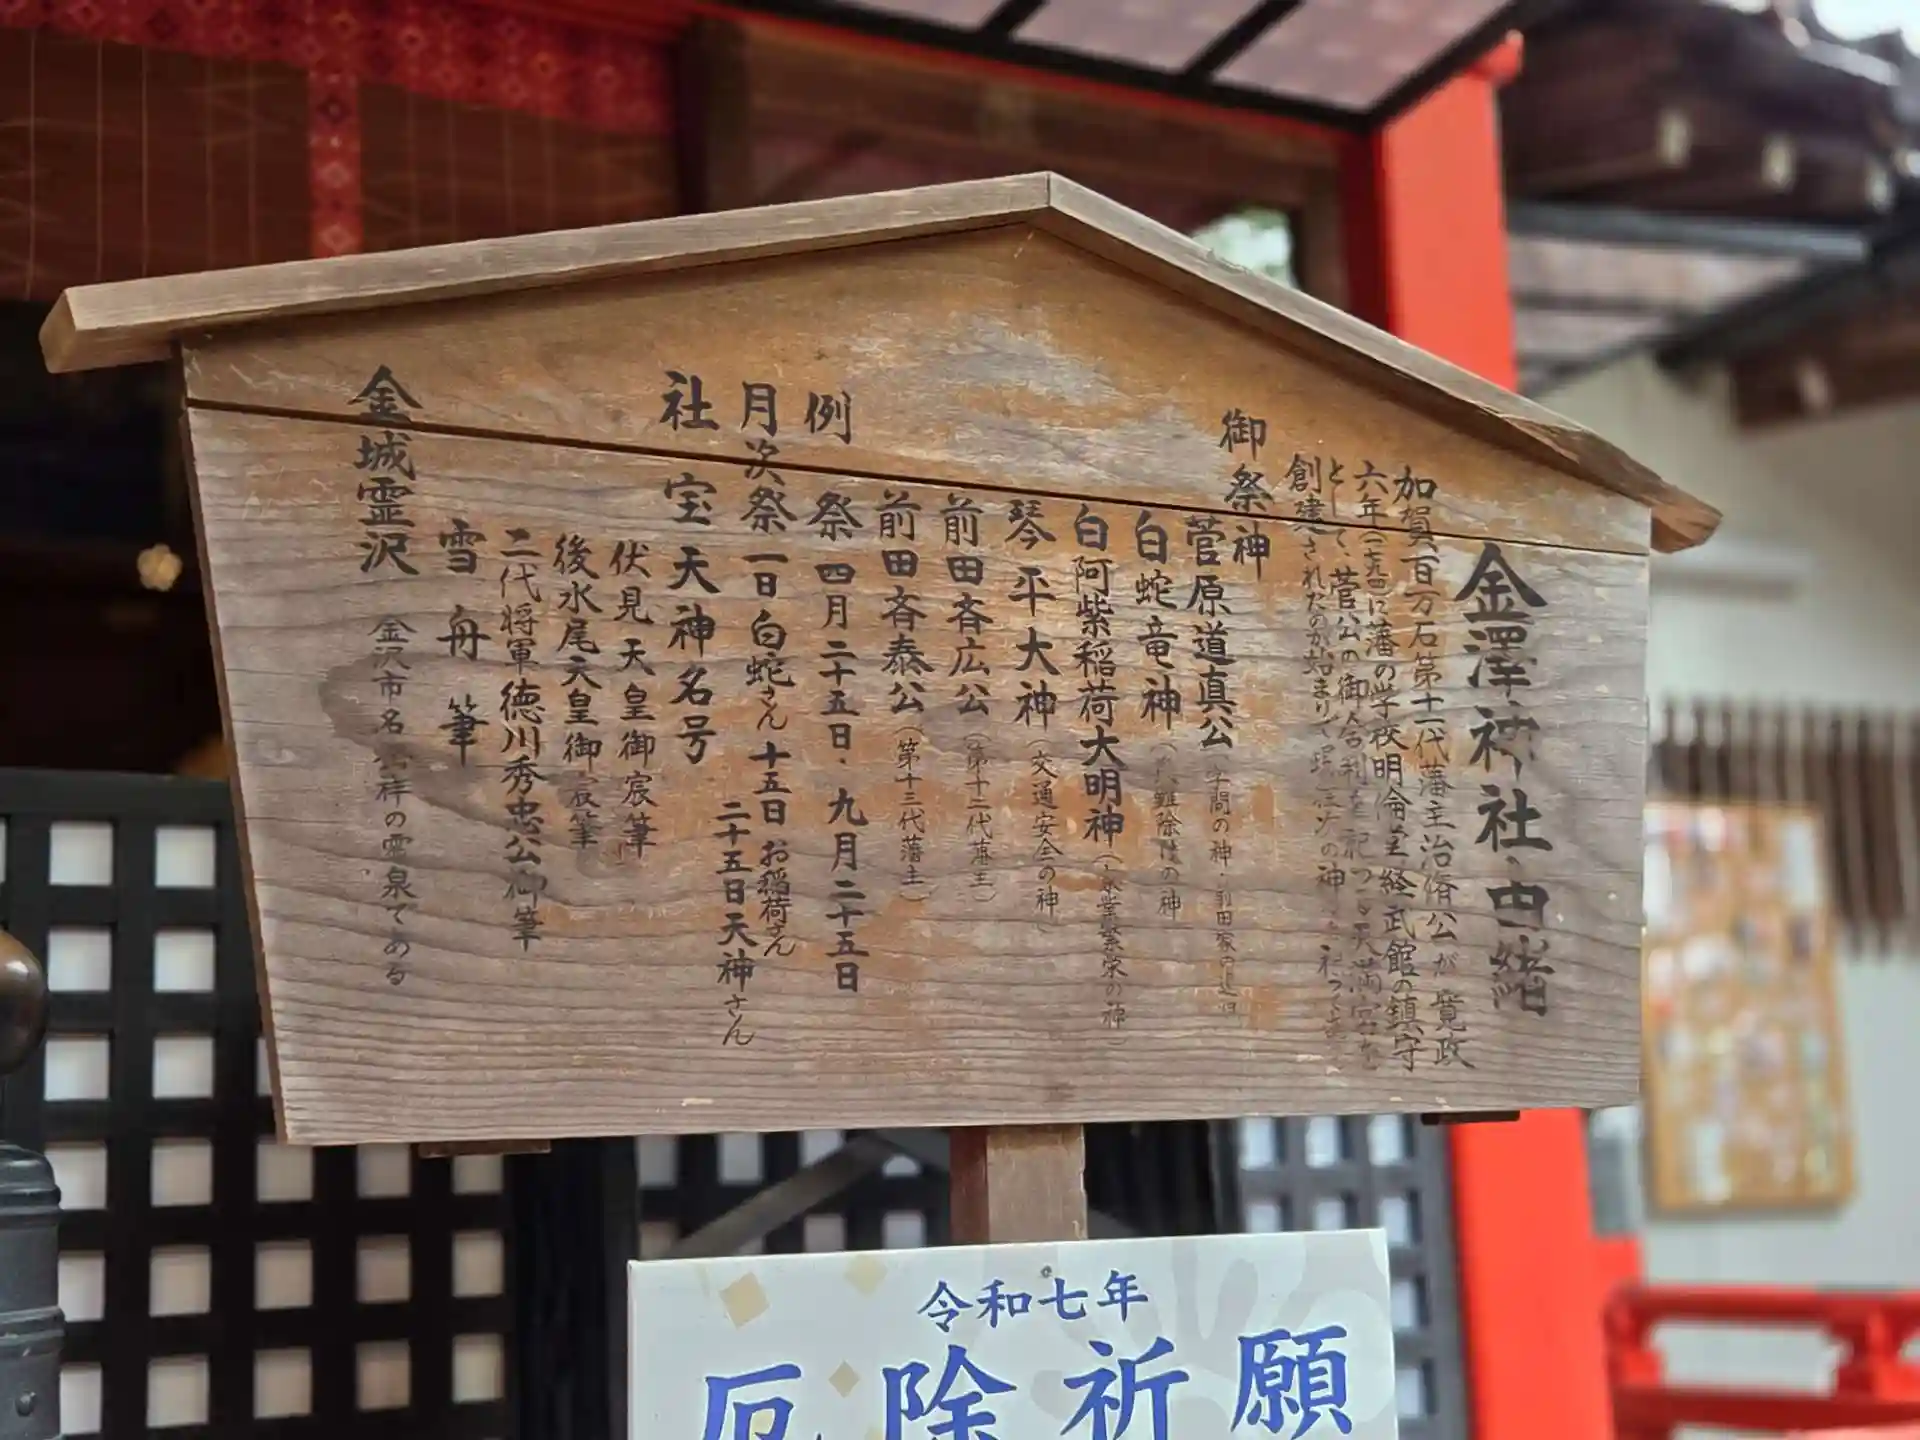 金澤神社由緒
加賀百万石第十一代藩主治脩公が寛政
六年(一七九四)に藩の学校明倫堂経武館の鎮守
として、菅公の御舎利を祀つる天満宮を
創建されたのが始まりで現在次の神々を祀つて
御祭神
菅原道真公(学問の神・前田家の
白蛇竜神(災難除けの神
白阿紫稲荷大明神(家業繁栄の神)
琴平大神(交通安全の神)
前田斉広公(第十二代藩主)
前田斉泰公(第十三代藩主)
例祭 四月二十五日・九月二十五日
月次祭 一日白蛇さん 十五日お稲荷さん
二十五日天神さん
社宝 天神名号
伏見天皇御宸筆
後水尾天皇御宸筆
二代将軍徳川秀忠公御筆
雪舟筆
金城霊沢 金沢市名 祥の霊泉である
令和七年
厄除祈願